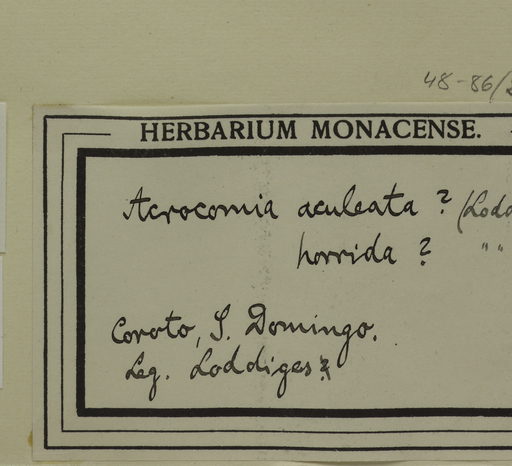 48-86/
HERBARIUM MONACENSE.
Acrocomia aculeata ? (Lodd
horrida ? " "
Coroto, S. Domingo.
Leg. Loddiges?